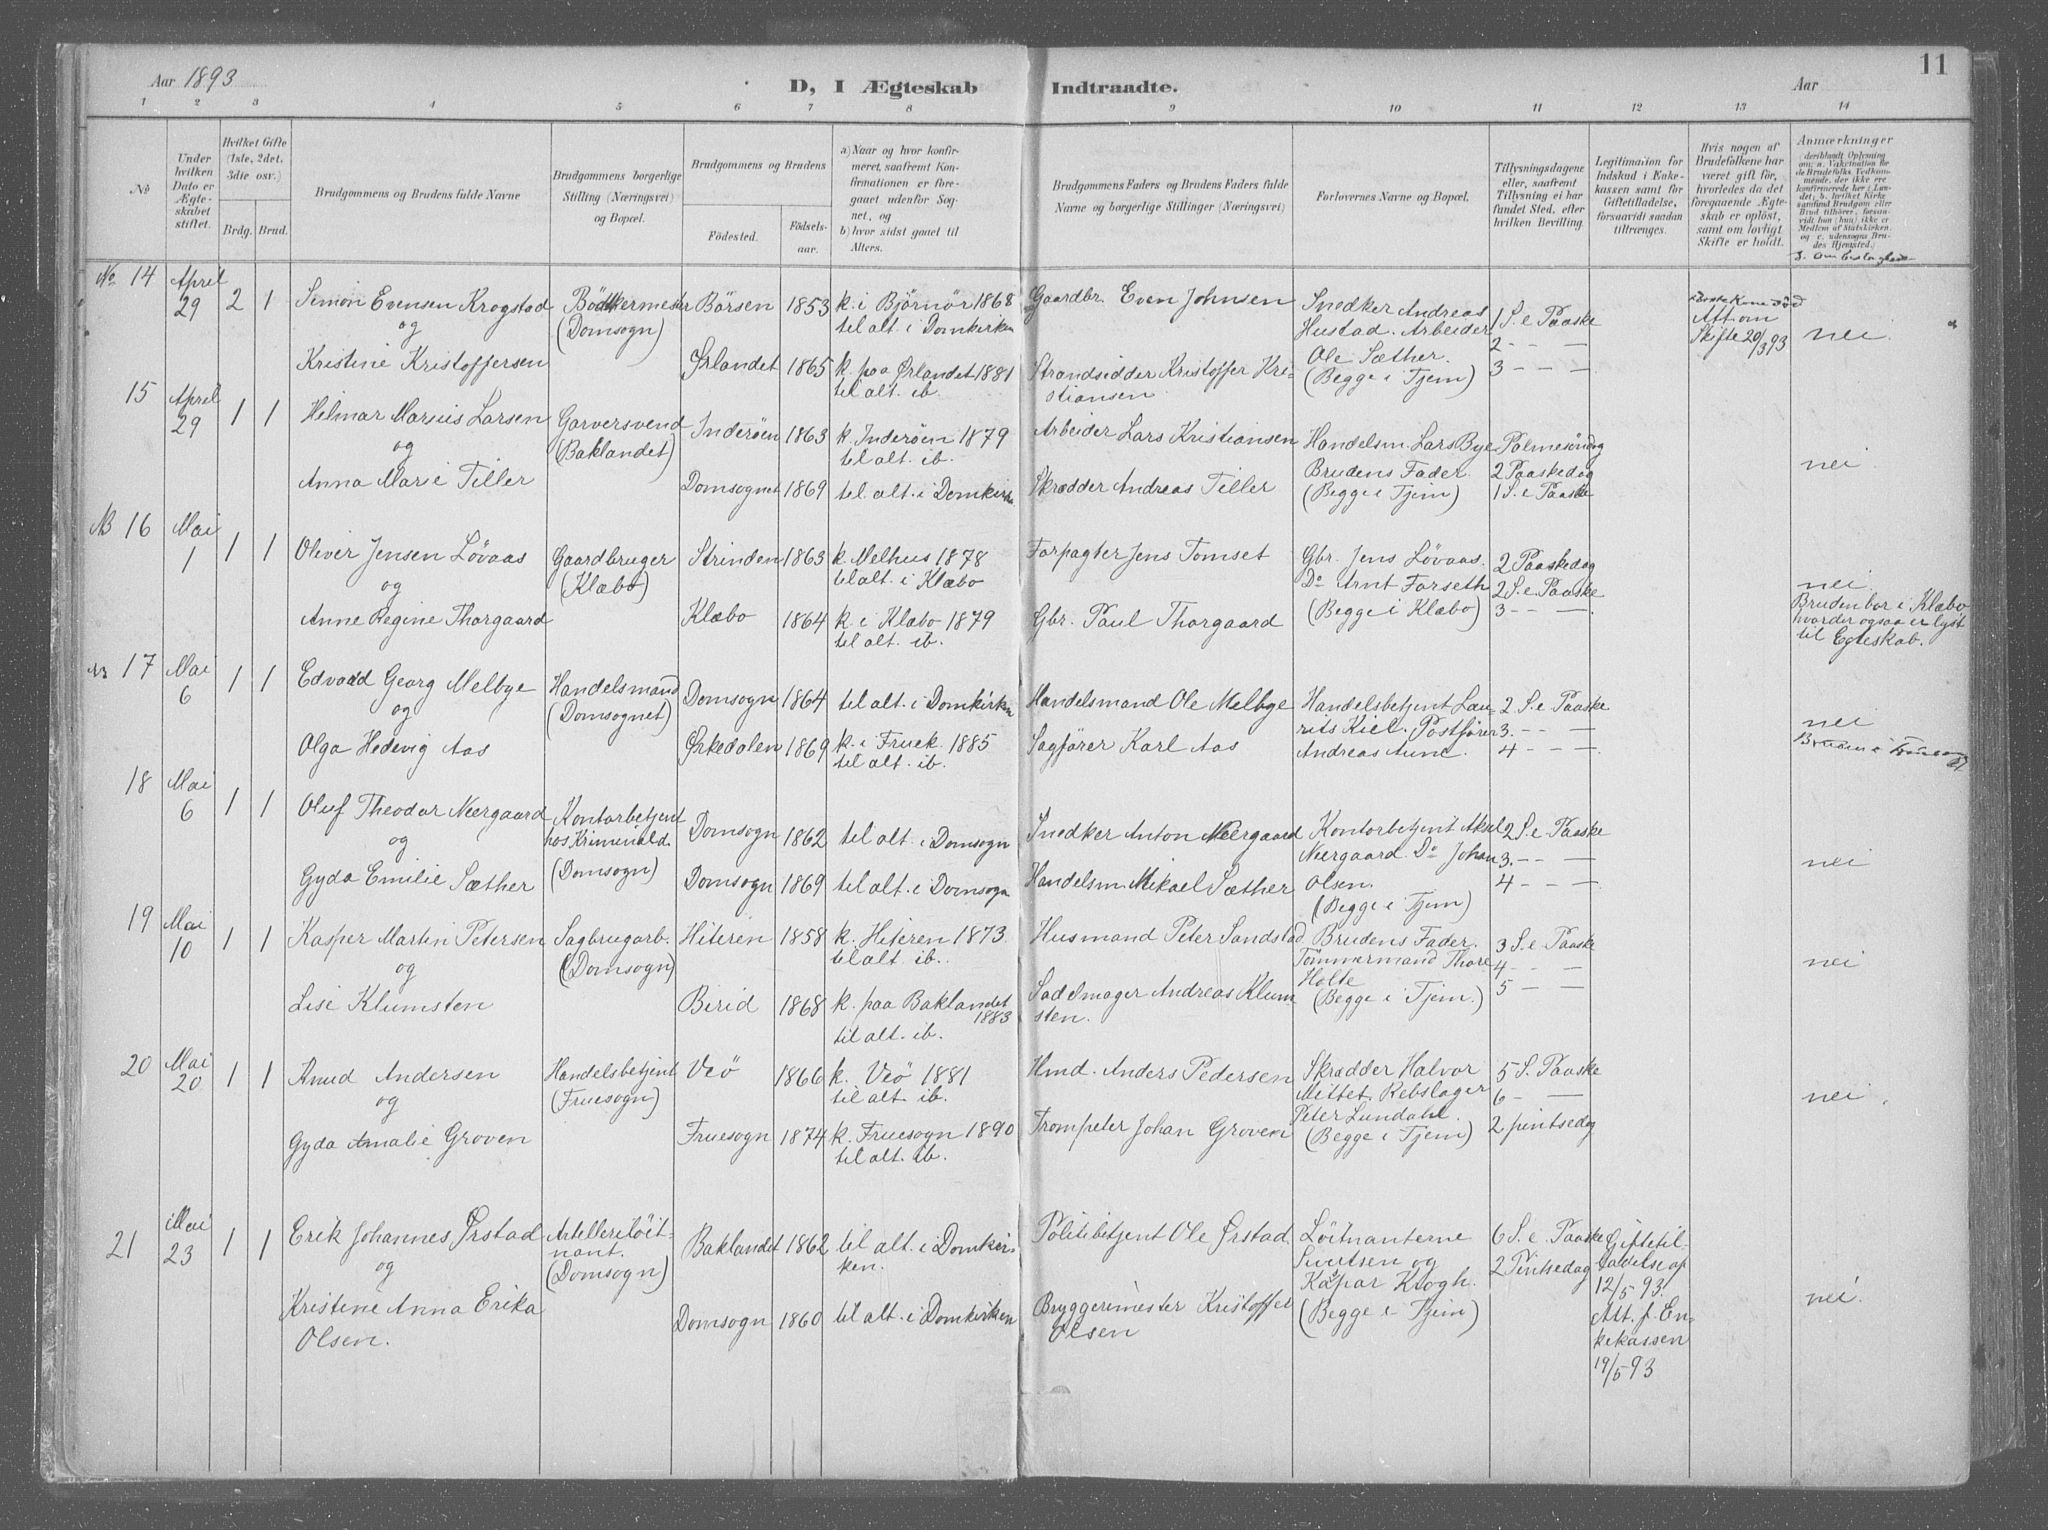 Aar 1893
D, I Ægteskab Indtraadte.
Aar
11
1 2 3 4 5 6 7 8 9 10 11 12 13 14
No
Under hvilken Dato er Ægteskabet stiftet.
Hvilket Gifte (1ste, 2det, 3die osv.)
Brdg. Brud.
Brudgommens og Brudens fulde Navne
Brudgommens borgerlige Stilling (Næringsvei) og Bopæl.
Brudgommens og Brudens
Fødested.
Fødselsaar.
a) Naar og hvor konfirmeret, saafremt Konfirmationen er foregaaet udenfor Sognet, og
b) hvor sidst gaaet til Alters.
Brudgommens Faders og Brudens Faders fulde Navne og borgerlige Stillinger (Næringsvei)
Forlovernes Navne og Bopæl.
Tillysningsdagene eller, saafremt Tillysning ei har fundet Sted, efter hvilken Bevilling.
Legitimation for Indskud i Enkekassen samt for Giftetilladelse, forsaavidt saadan tiltrænges.
Hvis nogen af Brudefolkene har været gift før, hvorledes da det foregaaende Ægteskab er opløst, samt om lovligt Skifte er holdt.
Anmærkninger
(deriblandt Oplysning om: a. Vakcination for de Brudefolks Vedkommende, der ikke ere konfirmerede her i Landet; b. hvilket Kirkesamfund Brudgom eller Brud tilhører, forsaavidt han (hun) ikke er Medlem af Statskirken, og c. udensogns Brudes Hjemsted.)
No 14
April
29
2 1
Simon Evensen Krogstad
og
Kristine Kristoffersen
Bödkermester
(Domsogn)
Börsen 1853
k. i Björnör 1868
til alt. i Domkirken
Ørlandet 1865
k. paa Ørlandet 1881
til alt. ib.
Gaardbr. Even Johnsen
Strandsidder Kristoffer Kri-
stiansen
Snedker Andreas
Hustad. Arbeider
Ole Sæther.
(Begge i Tjem)
1 S. e Paaske
2 – – —
3 – – —
Kone död
Att om
Skifte 20/3 93
nei.
15
April
29
1 1
Helmar Marius Larsen
og
Anna Marie Tiller
Garversvend
(Baklandet)
Inderöen 1863
k. Inderöen 1879
til alt. ib.
Domsognet 1869
til alt. i Domkirken
Arbeider Lars Kristiansen
Skrædder Andreas Tiller
Handelsm. Lars Bye
Brudens Fader
(Begge i Tjem)
Palmesöndag
2 Paaskedag
1 S. e Paaske
nei
NB 16
Mai
1
1 1
Oliver Jensen Løvaas
og
Anne Regine Thorgaard
Gaardbruger
(Klæbo)
Strinden 1863
k. Melhus 1878
til alt. i Klæbo
Klæbo 1864
k. i Klæbo 1879
til alt. ib.
Forpagter Jens Tomset
Gbr. Paul Thorgaard
Gbr. Jens Løvaas.
Do Arnt Forseth
(Begge i Klæbo)
2 Paaskedag
2 S. e Paaske
3 – – —
nei
Bruden bor i Klæbo
hvor der ogsaa er lyst
til Egteskab.
17
Mai
6
1 1
Edvard Georg Melbye
og
Olga Hedevig Aas
Handelsmand
(Domsognet)
Domsogn 1864
til alt. i Domkirken
Ørkedalen 1869
k. i Fruek. 1885
til alt. ib.
Handelsmand Ole Melbye
Sagfører Karl Aas
Handelsbetjent Lau-
rits Kiel. Postfører
Andreas Aune.
2 S. e Paaske
3. – – —
4 – – —
nei
18
Mai
6
1 1
Oluf Theodor Neergaard
og
Gyda Emilie Sæther
Kontorbetjent
hos Kriminald.
(Domsogn)
Domsogn 1862
til alt. i Domsogn
Domsogn 1869
til alt. i Domsogn
Snedker Anton Neergaard
Handelsm. Mikael Sæther
Kontorbetjent Aksel
Neergaard. Do Johan
Olsen.
(Begge i Tjem)
2 S. e Paaske
3. – – —
4 – – —
nei
19
Mai
10
1 1
Kasper Martin Petersen
og
Lise Klumsten
Sagbrugarb.
(Domsogn)
Hiteren 1858
k. Hiteren 1873.
til alt. ib.
Birid 1868
k. paa Baklandet
1883
til alt. ib.
Husmand Peter Sandstad
Sadelmager Andreas Klum
sten.
Brudens Fader.
Tömmermand Thore
Holte
(Begge i Tjem.)
3 S. e Paaske
4 – – —
5 – – —
nei
20
Mai
20
1 1
Knud Andersen
og
Gyda Amalie Groven
Handelsbetjent
(Fruesogn)
Veö 1866
k. Veö 1881
til alt. ib.
Fruesogn 1874
k. Fruesogn 1890
til alt. ib.
Hmd. Anders Pedersen
Trompeter Johan Groven
Skrædder Halvor
Mittet. Rebslager
Peter Lundahl.
(Begge i Tjem)
5 S. Paaske
6 – —
2 pintsedag
nei
21
Mai
23
1 1
Erik Johannes Ørstad
og
Kristine Anna Erika
Olsen.
Artelleriløit-
nant.
(Domsogn)
Baklandet 1862
til alt. i Domkir-
ken.
Domsogn 1860
til alt. i Domkirken
Politibetjent Ole Ørstad
Bryggerimester Kristoffer
Olsen
Löitnanterne
og
Kaspar Krogh.
(Begge i Tjem)
6 S. e. Paaske
2 Pintsedag
Giftetil-
ladelse af
12/5 93.
Att. f. En-
kekassen
19/5 93
nei.